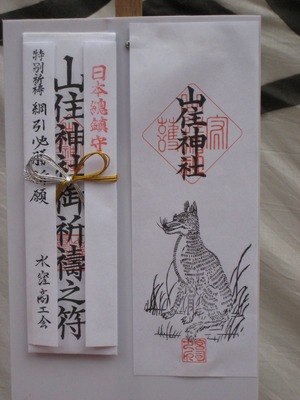 日本總鎮守
山住神社御祈禱之符
特別祈禱 綱引必勝祈願
水窪商工会
山住神社
守護